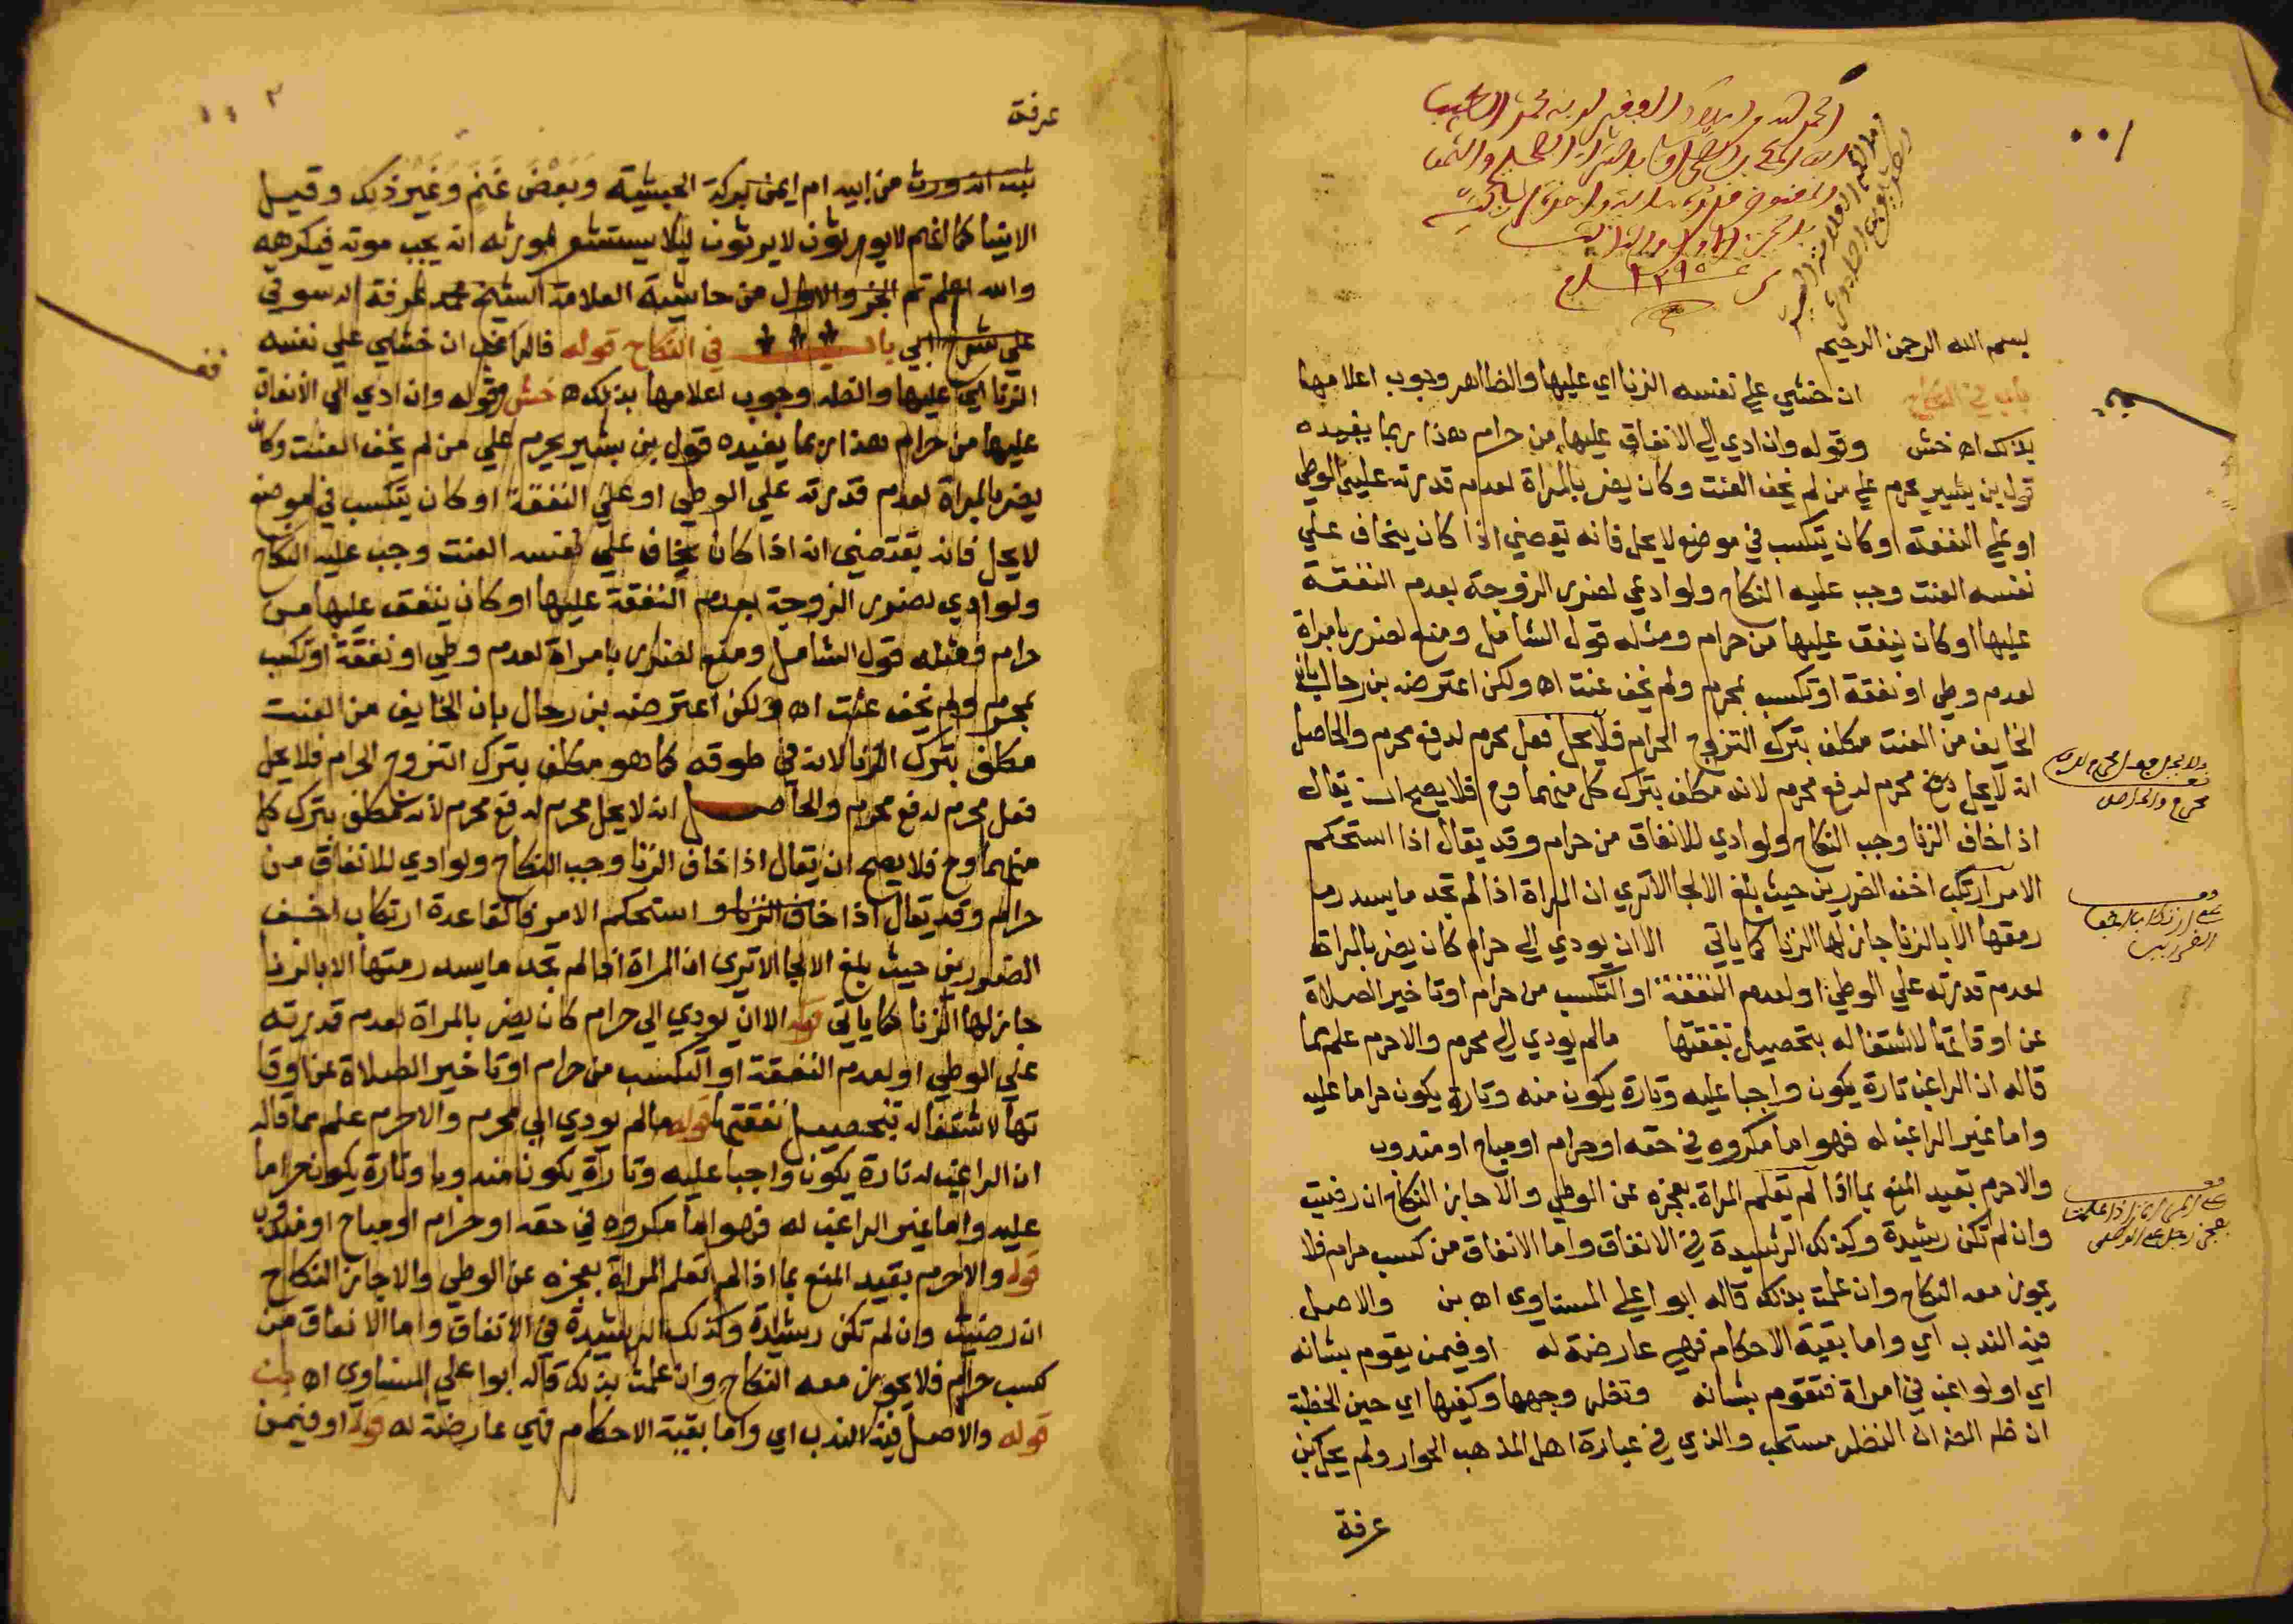 بسم الله الرحمن الرحيم
باب في النكاح ان خشي علي نفسه الزنا اي عليها والظاهر وجوب اعلامها
بذلك اه خش وقوله وان ادي الي الانفاق عليها من حرام هذا ربما يفيده
قول بن بشير يحرم علي من لم يخف العنت وكان يضر بالمراة لعدم قدرته علي الوطي
او علي النفقة او كان يتكسب في موضع لا يحل فانه تقضي اذا كان يخاف علي
نفسه العنت وجب عليه النكاح ولو ادي لضرر الزوجة بعدم النفقة
عليها او كان ينفق عليها من حرام ومثله قول الشامل ومنع لضرر بامراة
لعدم وطي او نفقة او تكسب بمحرم ولم يخف عنت اه ولكن اعترضه بن رحال بان
الخايف من العنت مكلف بترك التزوج الحرام فلا يحل فعل محرم لدفع محرم والحاصل
انه لا يحل محرم لدفع محرم لانه مكلف بترك كل منهما وح فلا يصح ان يقال
اذا خاف الزنا وجب النكاح ولو ادي للانفاق من حرام وقد يقال اذا استحكم
الامر ارتكب اخف الضررين حيث بلغ الالجا الا تري ان المراة اذا لم تجد ما يسد رمـ
رمقها الا بالزنا جاز لها الزنا كما ياتي الا ان يودي الي حرام كان يضر بالمراة
لعدم قدرته علي الوطي او لعدم النفقة او التكسب من حرام او تاخير الصلاة
عن اوقاتها لاشتغاله بتحصيل نفقتها ما لم يودي الي محرم والا حرم علم مما
قاله ان الراغب تارة يكون واجبا عليه وتارة يكون منه وتارة يكون حراما عليه
واما غير الراغب له فهو اما مكروه في حقه او حرام او مباح او مندوب
والا حرم بقيد المنع بما اذا لم تعلم المراة بعجزه عن الوطي والا جاز النكاح ان رضيت
وان لم تكن رشيدة وكذلك الرشيدة في الانفاق واما الانفاق من كسب حرام فلا
يجوز معه النكاح وان علمت بذلك قاله ابوا علي المسناوي اه بن والاصل
فيه الندب اي واما بقية الاحكام فهي عارضة له او فيمن يقوم بشانه
اي او لو اغب في امراة فتقوم بشانه ونظر وجهها وكفيها اي حين الخطبة
ان ظم المص ان النظر مستحب والذي في عبارة اهل المذهب الجواز ولم يحك بن
عرفة
عرفة
ورث من ابيه ام ايمن بركة الحبشية وبعض غنم وغير ذلك وقيل
الانبيا كما انهم لا يورثون لا يرثون ليلا يستشعر مورثه انه يحب موته فيكرهه
والله اعلم تم الجزو الاول من حاشية العلامة الشيخ محمد عرفة الدسوقي
علي شرح ابي باب في النكاح قوله فالراغب ان خشي علي نفسه
الزنا اي عليها والظاهر وجوب اعلامها بذلك اه خش وقوله وان ادي الي الانفاق
عليها من حرام هذا ربما يفيده قول بن بشير يحرم علي من لم يخف العنت وكان
يضر بالمراة لعدم قدرته علي الوطي او علي النفقة او كان يتكسب في موضع
لا يحل فانه يقتضي انه اذا كان يخاف علي نفسه العنت وجب عليه النكاح
ولو ادي لضرر الزوجة بعدم النفقة عليها او كان ينفق عليها من
حرام ومثله قول الشامل ومنع لضرر بامراة لعدم وطي او نفقة او تكسب
بمحرم ولم يخف عنت اه ولكن اعترضه بن رحال بان الخايف من العنت
مكلف بترك الزنا لانه في طوقه كما هو مكلف بترك التزوج الحرام فلا يحل
فعل محرم لدفع محرم والحاصل انه لا يحل محرم لدفع محرم لانه مكلف بترك كل
منهما وح فلا يصح ان يقال اذا خاف الزنا وجب النكاح ولو ادي للانفاق من
حرام وقد يقال اذا خاف الزنا و استحكم الامر فالقاعدة ارتكاب اخف
الضررين حيث بلغ الالجا الا تري ان المراة اذا لم تجد ما يسد رمقها الا بالزنا
جاز لها الزنا كما ياتي قوله الا ان يودي الي حرام كان يضر بالمراة لعدم قدرته
علي الوطي او لعدم النفقة او التكسب من حرام او تاخير الصلاة عن اوقا
تها لاشتغاله بتحصيل نفقتها قوله ما لم يودي الي محرم والا حرم علم مما قاله
ان الراغب له تارة يكون واجبا عليه وتارة يكون مندوبا وتارة يكون حراما
عليه واما غير الراغب له فهو اما مكروه في حقه او حرام او مباح او مندوب
قوله والا حرم بقيد المنع بما اذا لم تعلم المراة بعجزه عن الوطي والا جاز النكاح
ان رضيت وان لم تكن رشيدة وكذلك الرشيدة في الانفاق واما الانفاق من
كسب حرام فلا يجوز معه النكاح وان علمت بذلك قاله ابوا علي المسناوي اه بن
قوله والاصل فيه الندب اي واما بقية الاحكام فهي عارضة له قوله او فيمن